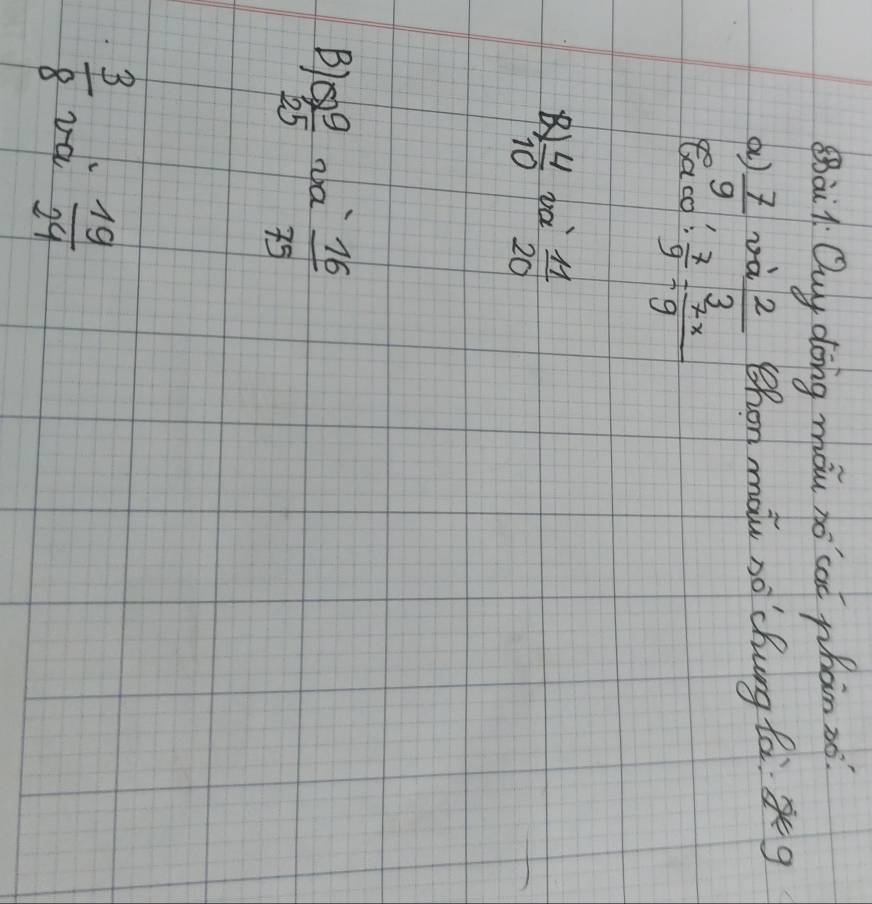 Bài 1: Quy đồng mẫu số các phân số.
a) 7/9 và 2/3 Chọn mẫu số chung là: 9
Ta có: 7/9 = 7x/9
B) 4/10 và 11/20
B) 9/25 và 16/75
3/8 và 19/24